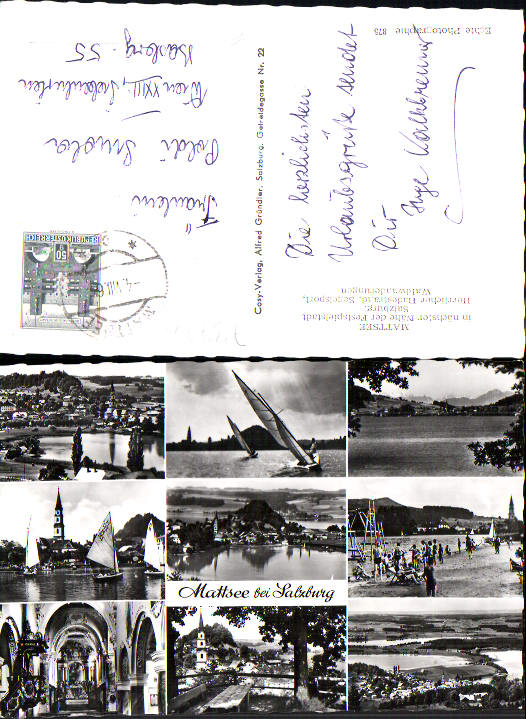 MATTSEE
in nächster Nähe der Festspielstadt
Salzburg.
Herrlicher Badestrand, Segelsport,
Waldwanderungen
Die herzlichsten
Urlaubsgrüße sendet
Dir Inge
Echte Photographie 875
Cosy-Verlag, Alfred Gründler, Salzburg, Getreidegasse Nr. 22
REPUBLIK ÖSTERREICH
50
Fräulein
Poldi
Wien XXIII,
55
Mattsee bei Salzburg